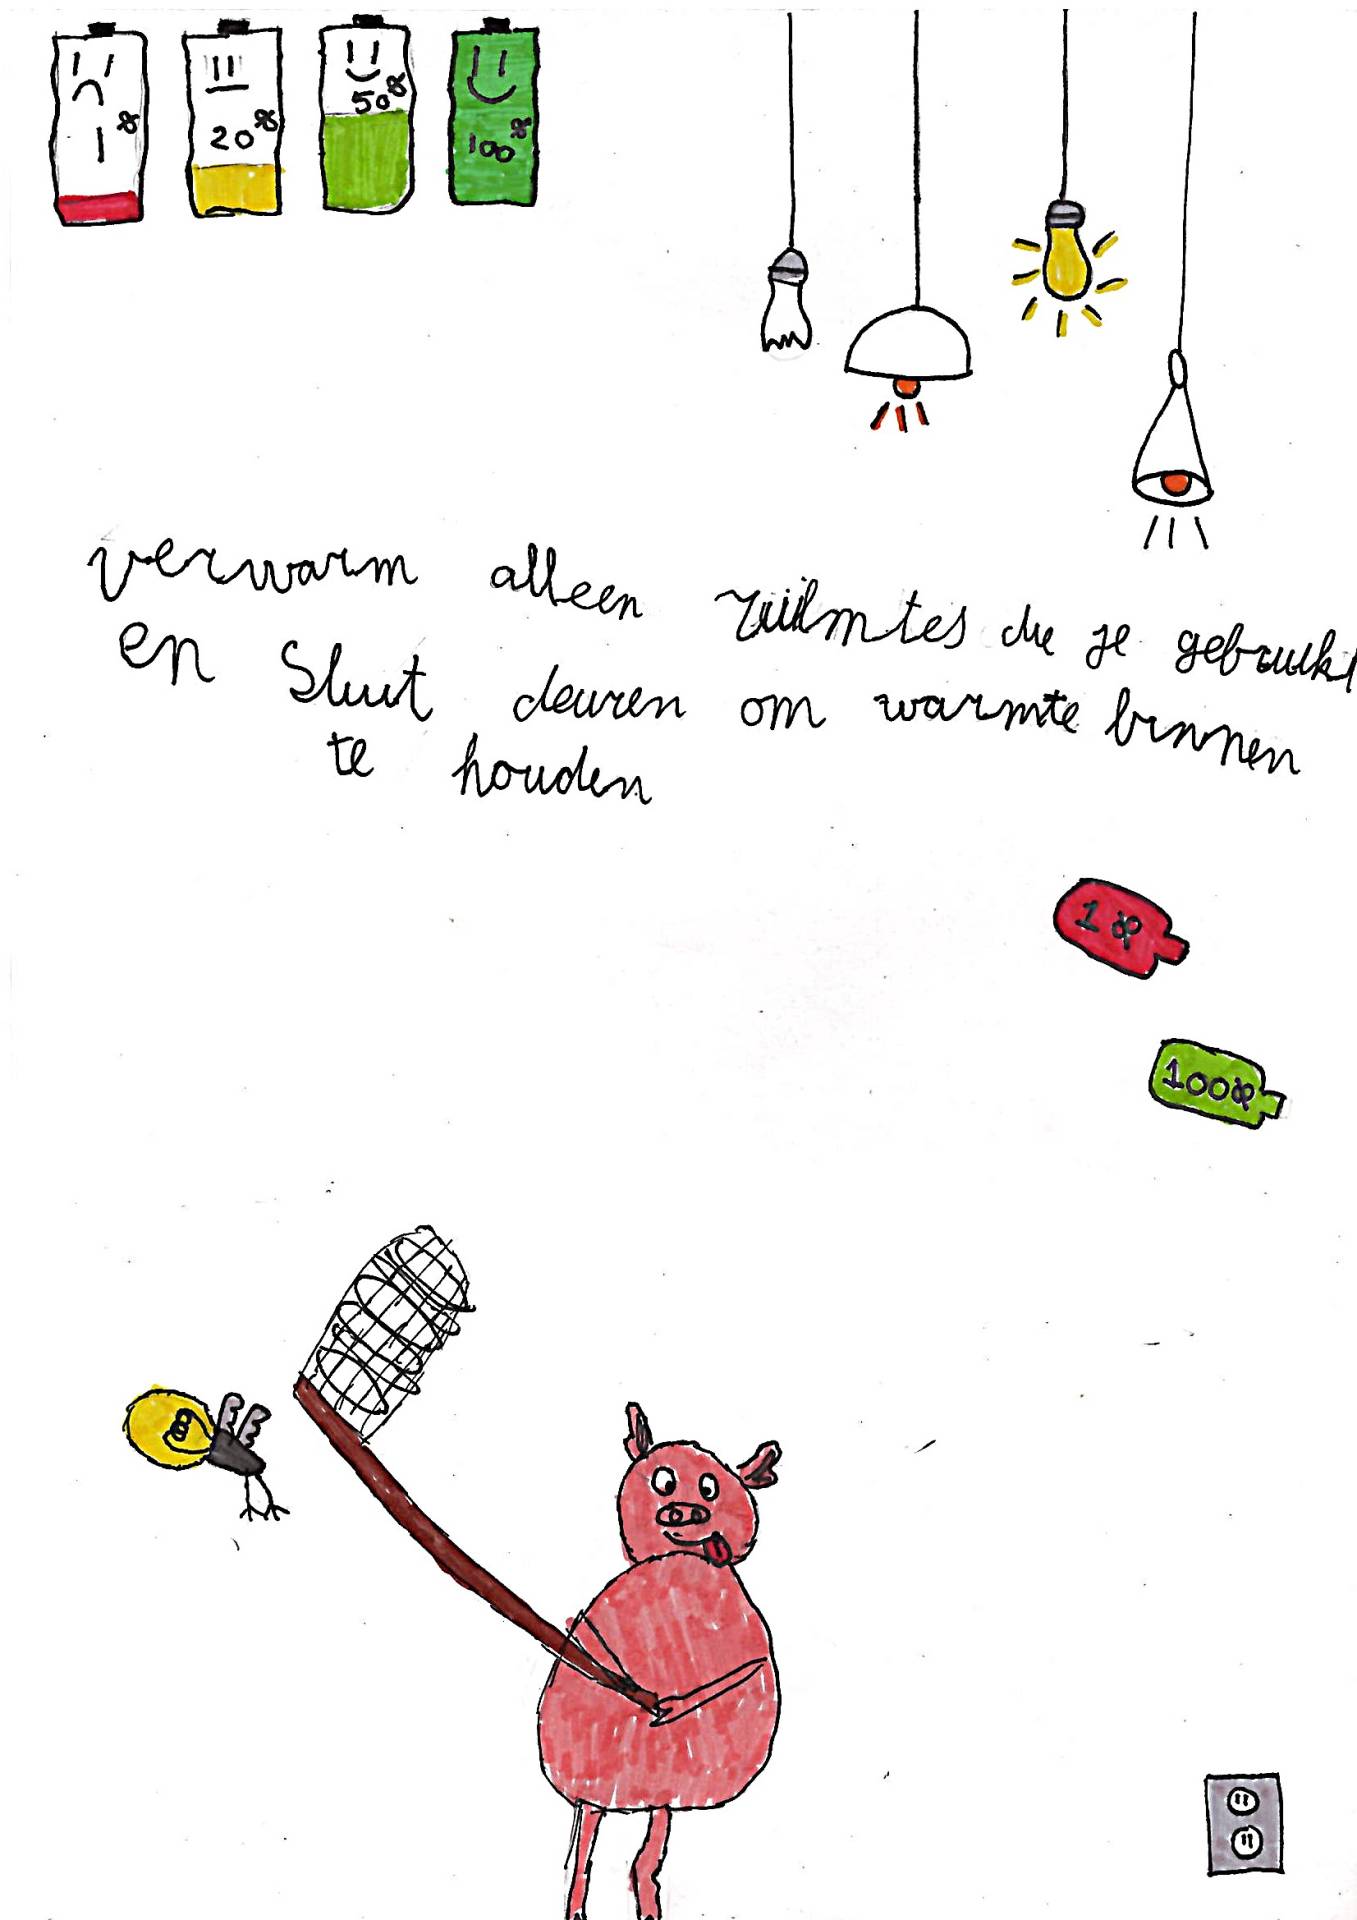 1%
20%
50%
100%
verwarm alleen ruimtes die je gebruikt
en sluit deuren om warmte binnen
te houden
1%
100%